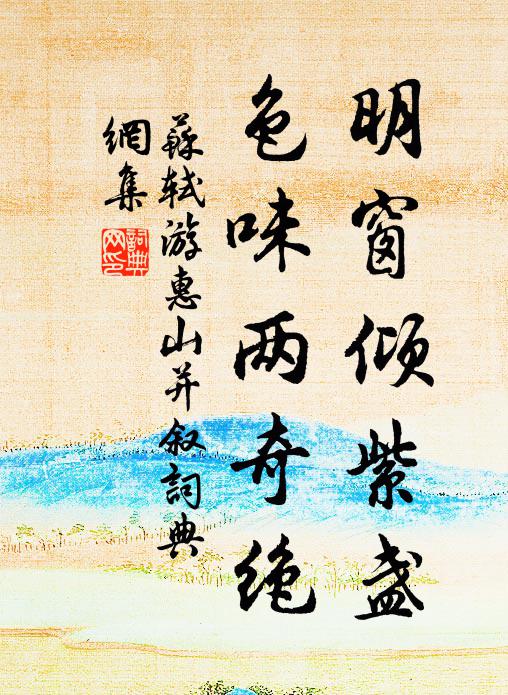 明窗倾紫盏
色味两奇绝
蘇軾游惠山并叙詞典
網集
詞典
网印